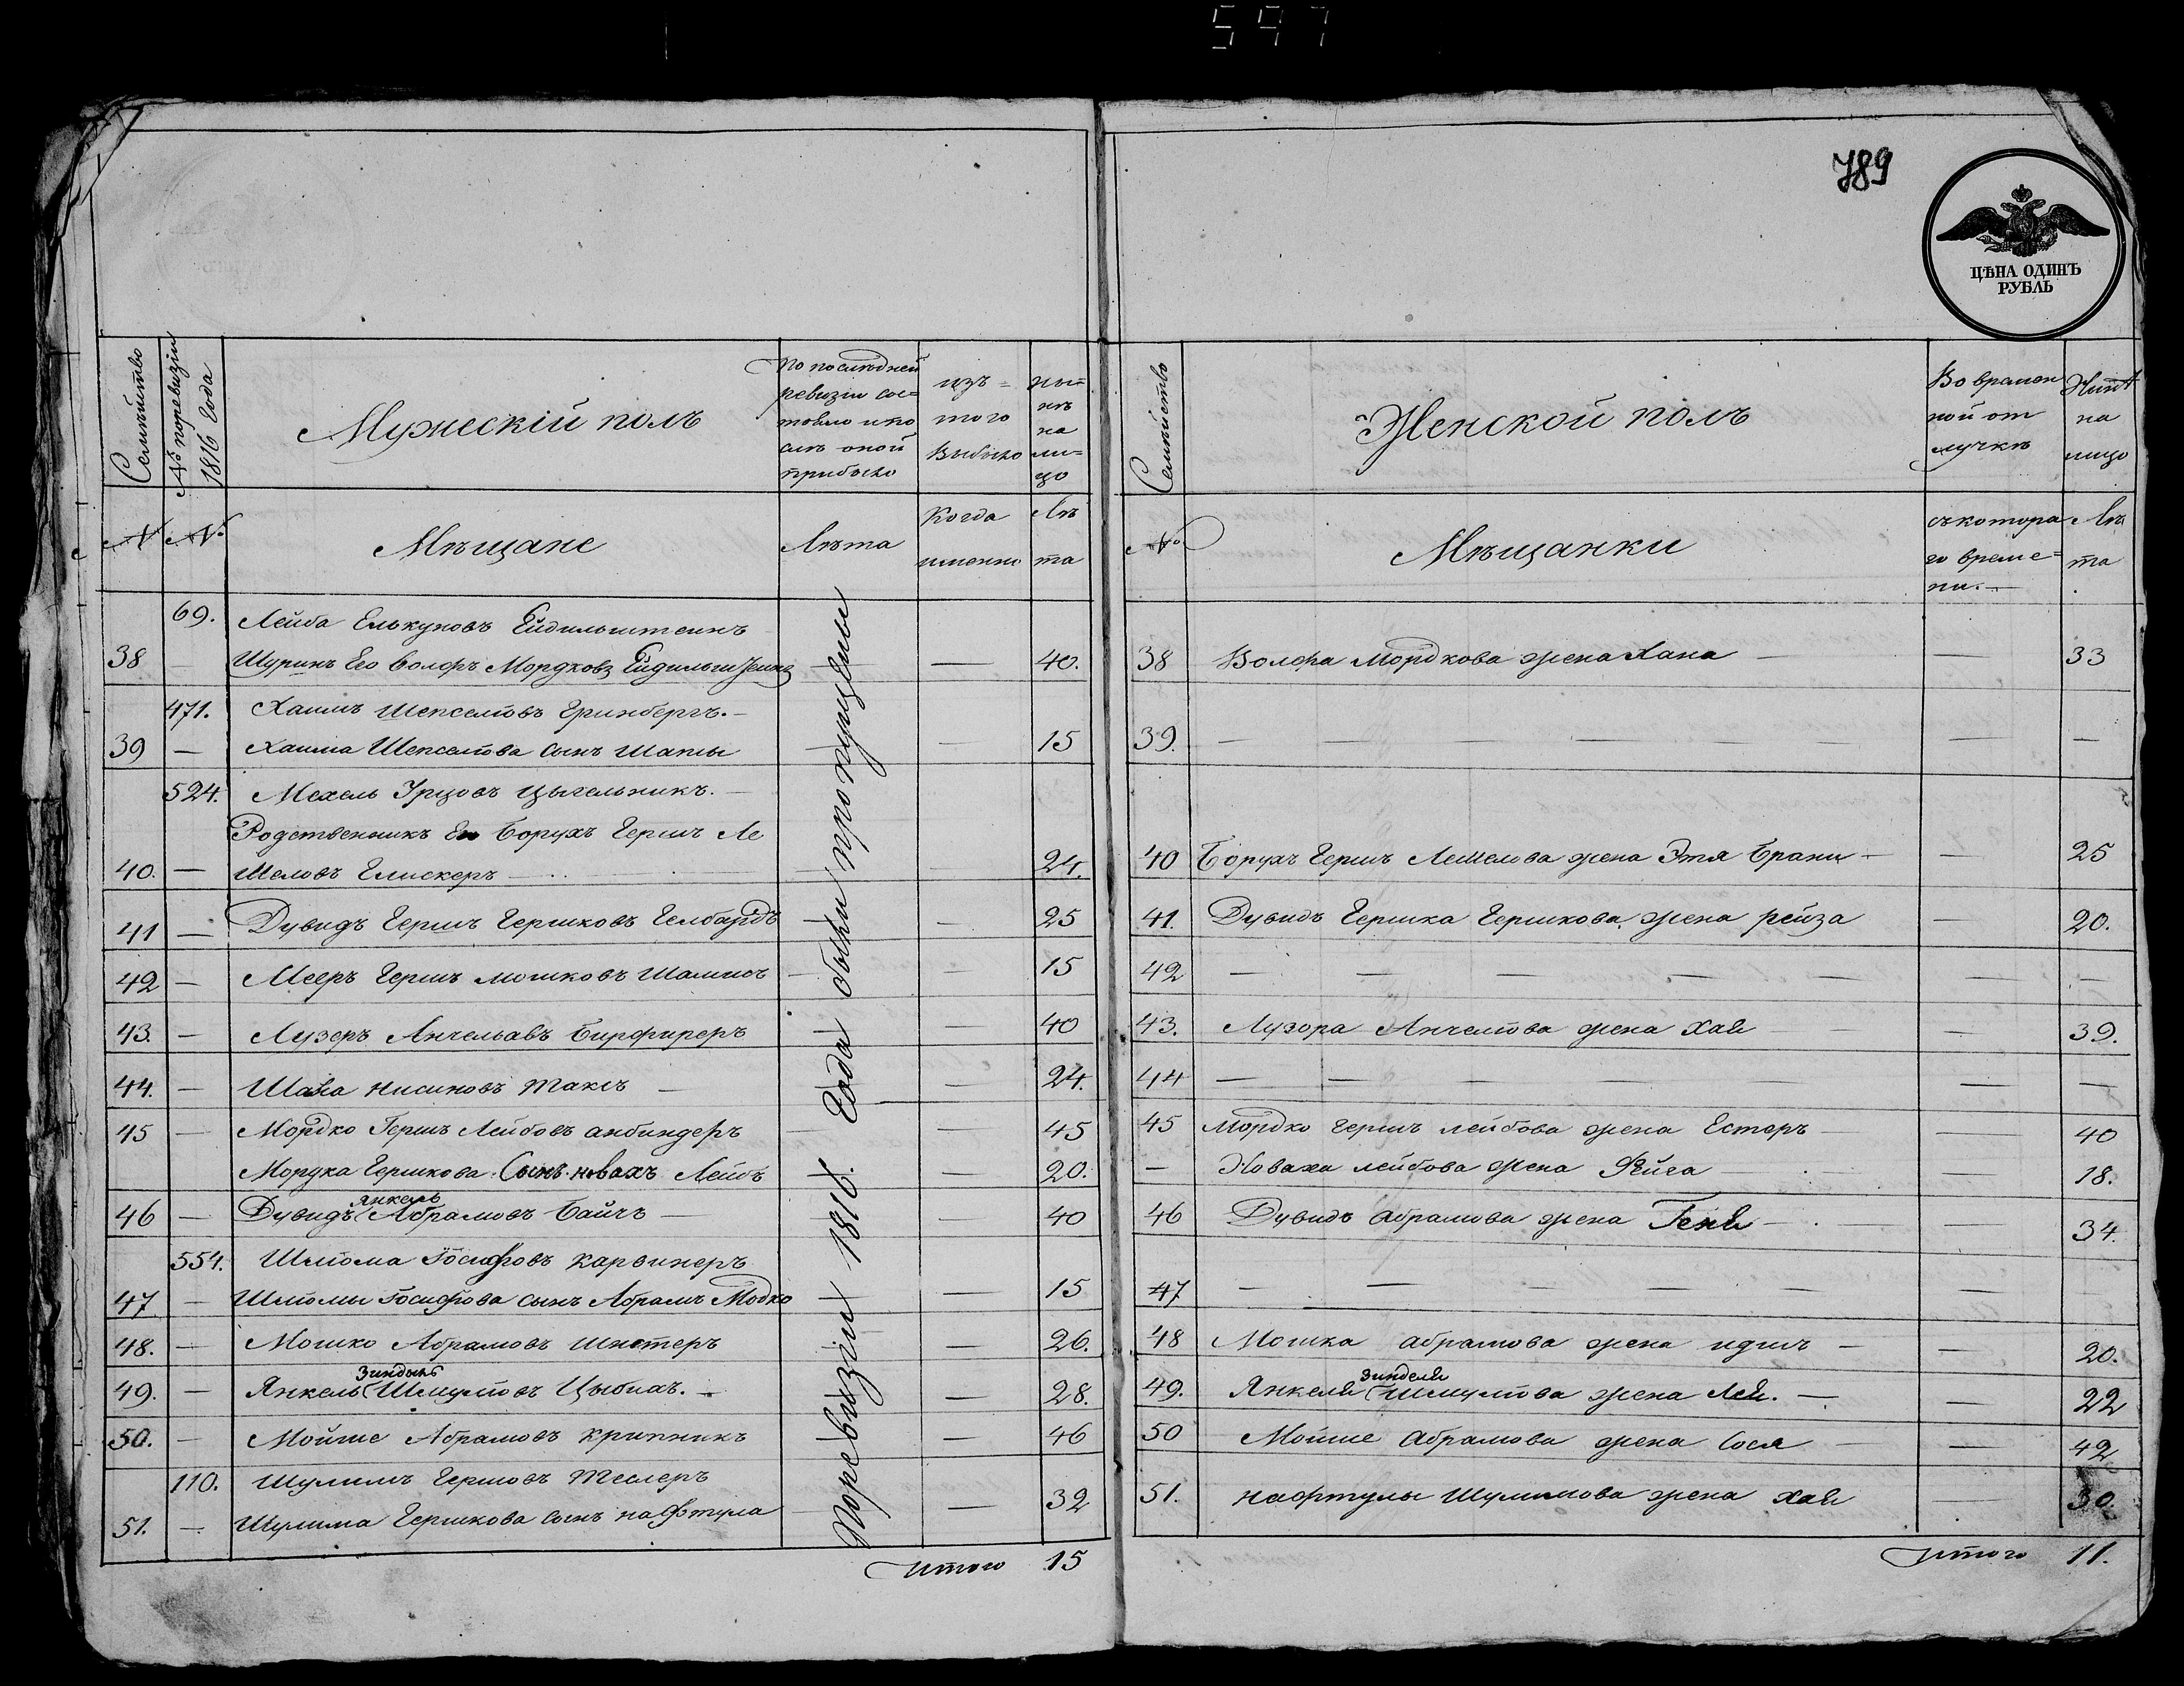 597
789
ЦѢНА ОДИНЪ
РУБЛЬ
Семѣйство
№ поревизіи
1816 года
Мужескій полъ
По послѣдней
ревизіи сос=
тояло и по
слѣ оной
прибыло
изъ=
того
выбыло
ны=
нѣ
на
ли=
цо
№ №
Мѣщане
Лѣта
Когда
именно
Лѣ
та
Поревизіи 1816. Года были пропущены
69. Лейба Елькуновъ Ейдильштеинъ
38 — Шуринъ Его Волфъ Мордковъ Ейдильштеинъ — — 40.
471. Хаимъ Шепселовъ Гринбергъ. —
39 — Хаима Шепселова сынъ Шапсы — — 15
524. Мехель Урцовъ Цыгельникъ. —
Родственникъ Ег Борухъ Гершъ Ле
40. — Шеловъ Глискеръ — — — 24.
41 — Дувидъ Гершъ Гершковъ Гелбардъ — — 25
42 — Мееръ Гершъ Мошковъ Шамисъ — — 15
43. — Лузеръ Анчельавъ Бирфиреръ — 40
44. — Шаха Нисиновъ Таксъ — — 24.
45 — Мордко Гершъ Лейбовъ Анбиндеръ — — 45
Мордка Гершкова Сынъ Новахъ Лейбъ — 20.
Янкель
46 — Дувидъ (Абрамовъ Байчъ — — 40
554. Шлома Іосифовъ Карвинеръ
47 — Шломы Іосифова сынъ Абрамъ Модко — — 15
48. — Мошко Абрамовъ Шнтеръ — 26.
Зиндыль
49. — Янкель (Шмуловъ Цыбихъ. — — 28.
50. — Мойше Абрамовъ Крипникъ — 46
110. Шулимъ Гершовъ Теслеръ
51. — Шулима Гершкова сынъ Нафтула — 32
Итого 15
Семѣйство
Женской полъ
Во времен
ной от
лучкѣ
Нынѣ
на
лицо
№
Мѣщанки
съ котора
го време=
ни. —
Лѣ
та
38 Волфа Мордкова жена Хана — — 33
39. — — — — — — —
40 Борухъ Гершъ Лешелова жена Этя Брани — — 25
41. Дувидъ Гершка Гершкова жена Рейза — 20.
42 — — — — — — —
43. Лузора Анчелова жена Хая — 39.
44 — — — — — — —
45 Мордко Гершъ Лейбова жена Естеръ — — 40
— Новаха Лейбова жена Фейга — — 18.
46 Дувидъ Абрамова жена Геня — — 34.
47 — — — — — — —
48 Мошка Абрамова жена Идисъ — — 20.
Зинделя
49. Янкеля (Шмулова жена Лея. — — 22
50 Мойше Абрамова жена Сося — — 42
51. Нафтулы Шулимова жена Хая — 30.
Итого 11.